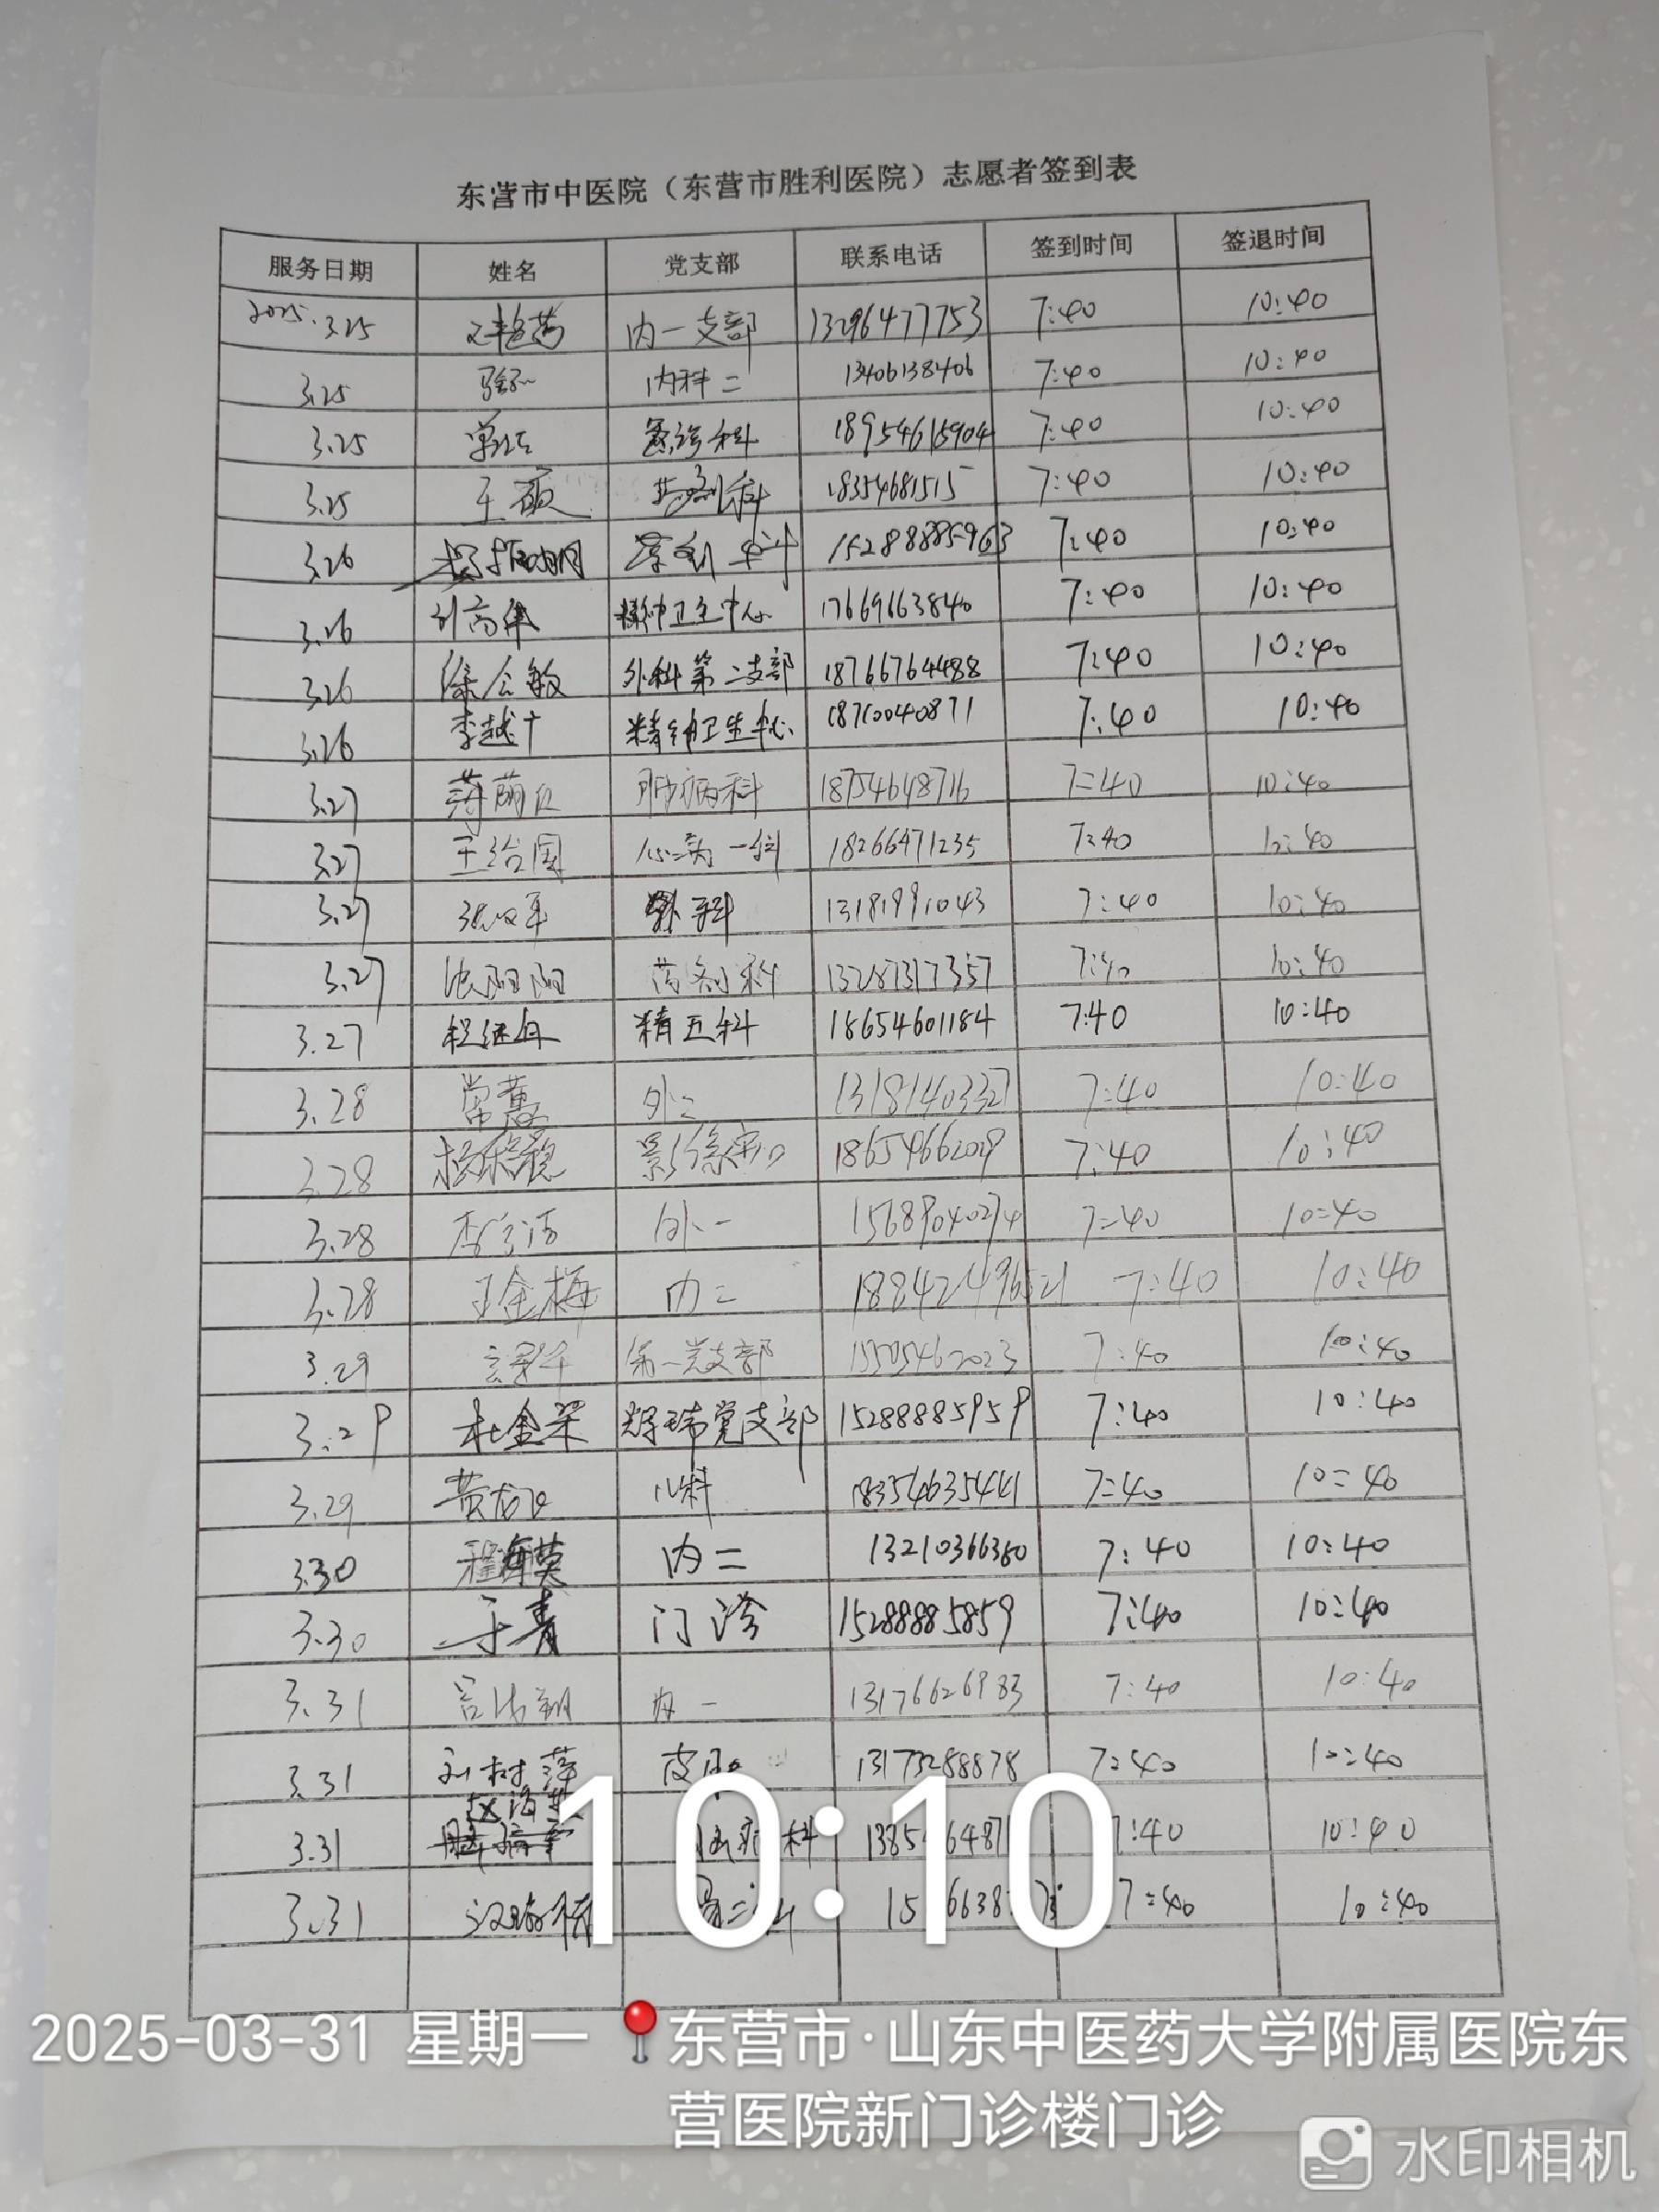 东营市中医院（东营市胜利医院）志愿者签到表
服务日期 姓名 党支部 联系电话 签到时间 签退时间
2025.3.25 内一支部 13296477753 7:40 10:40
3.25 内科二 13406138406 7:40 10:40
3.25 急诊科 18954615904 7:40 10:40
3.25 王薇 药剂科 18354681515 7:40 10:40
3.26 药剂科 15288885963 7:40 10:40
3.26 刘高伟 精神卫生中心 17669663840 7:40 10:40
3.26 徐会敏 外科第二支部 18766764488 7:40 10:40
3.26 李越 精神卫生中心 7:40 10:40
3.27 肺病科 18754648716 7:40 10:40
3.27 王治国 心病一科 18266471235 7:40 10:40
3.27 外科 13181991043 7:40 10:40
3.27 药剂科 13287317357 7:40 10:40
3.27 程继丹 精五科 18654601184 7:40 10:40
3.28 常蕙 外二 13181403327 7:40 10:40
3.28 18654662029 7:40 10:40
3.28 外一 15689040274 7:40 10:40
3.28 王金梅 内二 7:40 10:40
3.29 第一党支部 15505462023 7:40 10:40
3.29 杜金翠 党支部 15288885959 7:40 10:40
3.29 黄龙飞 儿科 18354635441 7:40 10:40
3.30 程海英 内二 13210366380 7:40 10:40
3.30 于青 门诊 15288885859 7:40 10:40
3.31 内一 13176626983 7:40 10:40
3.31 刘树萍 13173288878 7:40 10:40
3.31 7:40 10:40
3.31 7:40 10:40
10:10
2025-03-31 星期一 东营市·山东中医药大学附属医院东
营医院新门诊楼门诊
水印相机